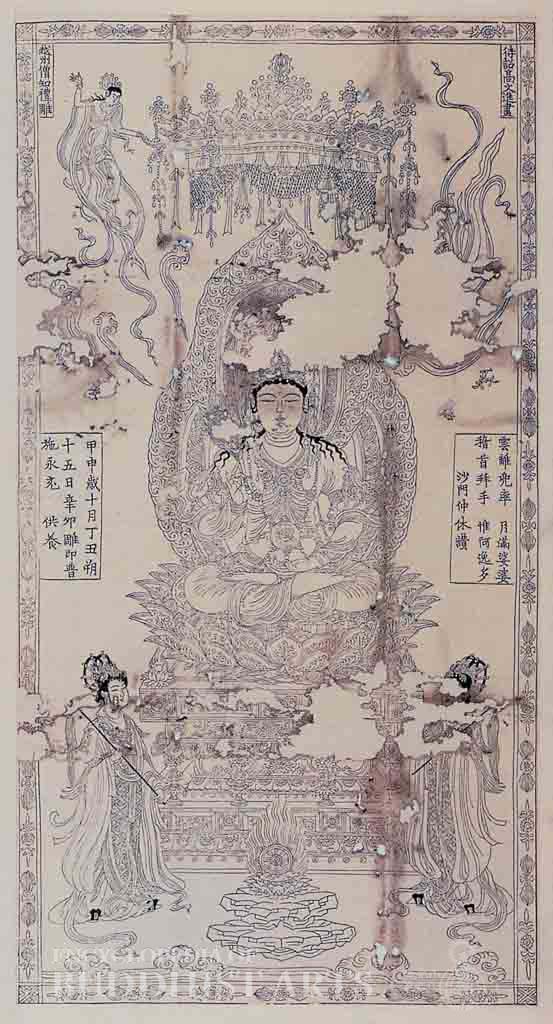 待詔高文進畫
越州僧知禮雕
雲離兜率 月滿娑婆
稽首拜手 惟阿逸多
沙門仲休讚
甲申歲十月丁丑朔
十五日辛卯雕印普
施永充 供養
ENCYCLOPEDIA OF
BUDDHIST ARTS